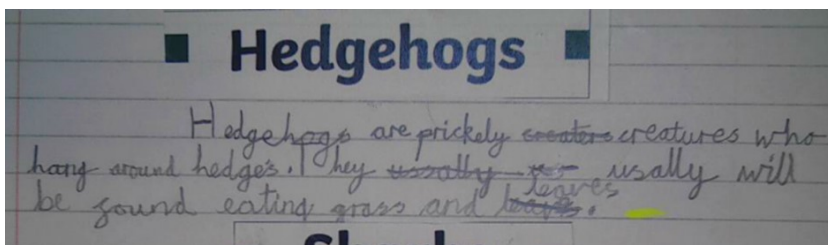 Hedgehogs
Hedgehogs are prickely creaters creatures who
hang around hedges. They ussally usally will
be found eating grass and leaves.